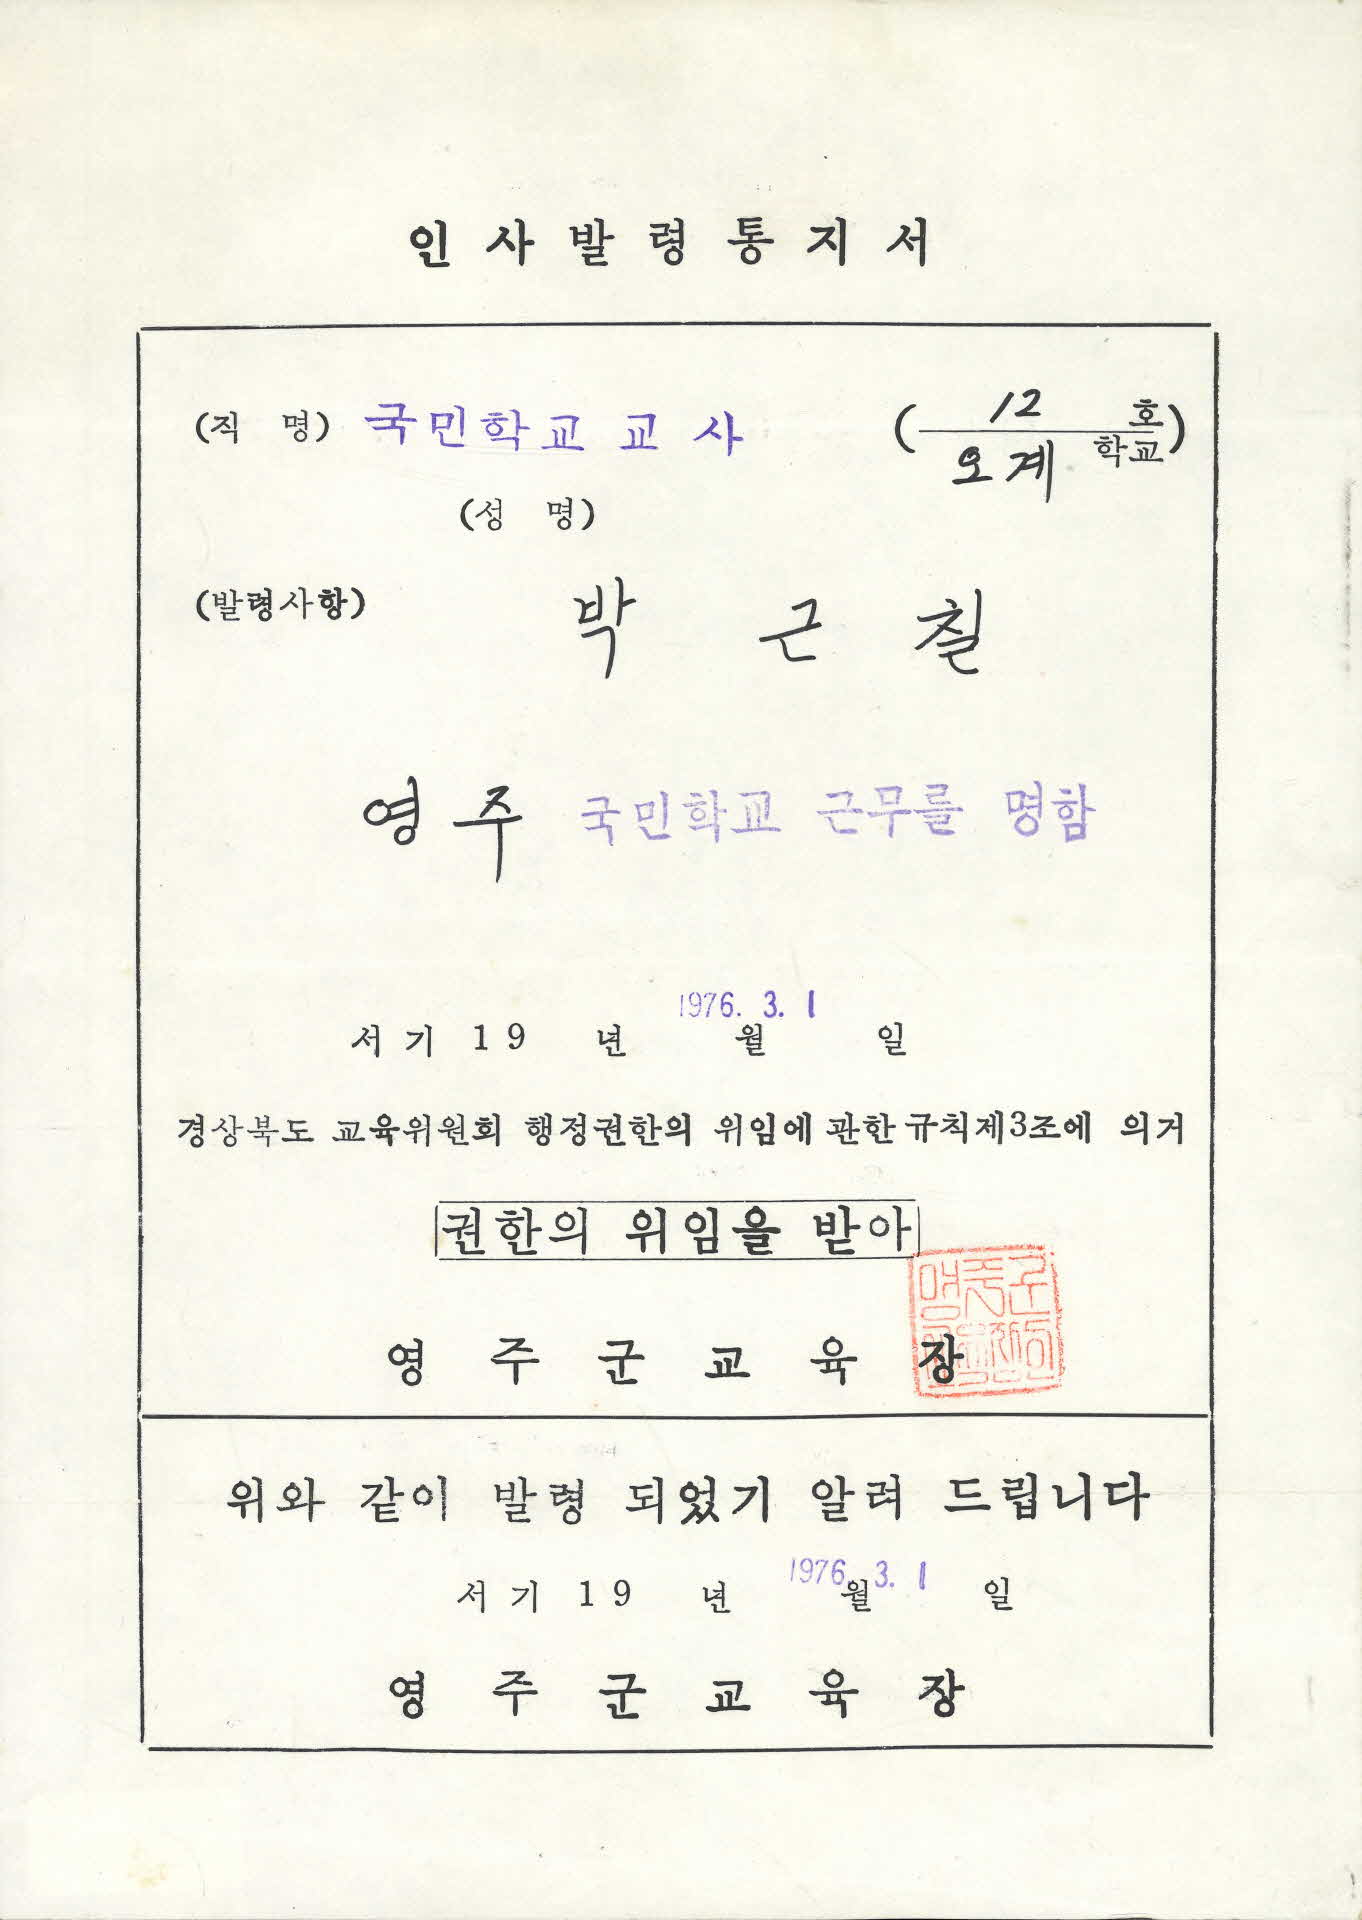 인사발령통지서
(직 명) 국민학교 교 사 (12 호
오계 학교)
(성 명)
(발령사항) 박 근 칠
영주 국민학교 근무를 명함
1976. 3. 1
서기 19 년 월 일
경상북도 교육위원회 행정권한의 위임에 관한 규칙제3조에 의거
권한의 위임을 받아
영 주 군 교 육 장
위와 같이 발령 되었기 알려 드립니다
1976. 3. 1
서기 19 년 월 일
영 주 군 교 육 장